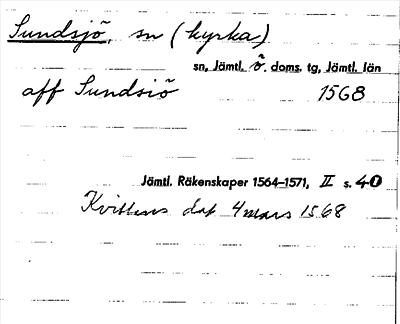 Sundsjö, sn (kyrka)
sn, Jämtl. ö. doms. tg, Jämtl. län
aff Sundsiö 1568
Jämtl. Räkenskaper 1564–1571, II s. 40
Kvittens dat 4 mars 1568